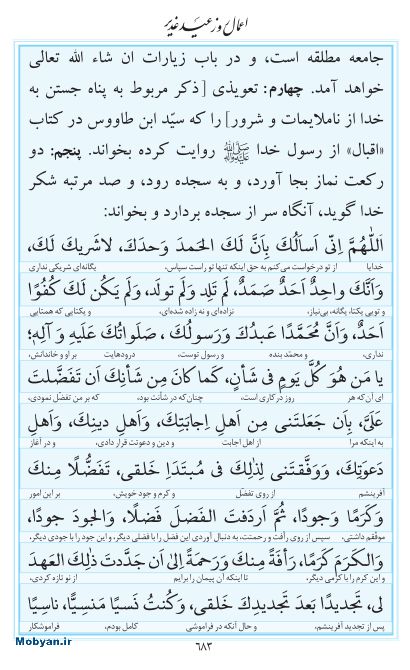 اعمال روز عید غدیر
جامعه مطلقه است، و در باب زیارات ان شاء الله تعالی
خواهد آمد. چهارم: تعویذی [ذکر مربوط به پناه جستن به
خدا از ناملایمات و شرور] را که سیّد ابن طاووس در کتاب
«اقبال» از رسول خدا ﷺ روایت کرده بخواند. پنجم: دو
رکعت نماز بجا آورد، و به سجده رود، و صد مرتبه شکر
خدا گوید، آنگاه سر از سجده بردارد و بخواند:
اَللّٰهُمَّ اِنّی اَسأَلُكَ بِاَنَّ لَكَ الحَمدَ وَحدَكَ، لاشَریكَ لَكَ،
خدایا از تو درخواست می‌کنم به حق اینکه تنها تو راست سپاس، یگانه‌ای شریکی نداری
وَاَنَّكَ واحِدٌ اَحَدٌ صَمَدٌ، لَم تَلِد وَلَم تولَد، وَلَم یَكُن لَكَ كُفُوًا
و تویی یکتا، یگانه، بی‌نیاز، نزاده‌ای و نه زاده شده‌ای، و یکتایی که همتایی
اَحَدٌ، وَاَنَّ مُحَمَّدًا عَبدُكَ وَرَسولُكَ ، صَلَواتُكَ عَلَیهِ وَ آلِهِ؛
نداری، و محمّد بنده و رسول توست، درودهایت بر او و خاندانش،
یا مَن هُوَ كُلَّ یَومٍ فی شَأنٍ، كَما كانَ مِن شَأنِكَ اَن تَفَضَّلتَ
ای آن‌که هر روز در کاری است، چنان‌که در شأنت بود، که بر من تفضّل نمودی،
عَلَیَّ، بِاَن جَعَلتَنی مِن اَهلِ اِجابَتِكَ، وَاَهلِ دینِكَ، وَاَهلِ
به اینکه مرا از اهل اجابت و دین و دعوتت قرار دادی، و در آغاز
دَعوَتِكَ، وَوَفَّقتَنی لِذٰلِكَ فی مُبتَدَإ خَلقی، تَفَضُّلًا مِنكَ
آفرینشم از روی تفضّل و کرم و جود خویش، بر این امور
وَكَرَمًا وَجودًا، ثُمَّ اَردَفتَ الفَضلَ فَضلًا، وَالجودَ جودًا،
موفقم داشتی، سپس از روی رأفت و رحمتت، به دنبال آوردی این فضل را با فضلی دیگر، و این جود را با جودی دیگر،
وَالكَرَمَ كَرَمًا، رَأفَةً مِنكَ وَرَحمَةً اِلیٰ اَن جَدَّدتَ ذٰلِكَ العَهدَ
و این کرم را با کرمی دیگر، تا اینکه آن پیمان را برایم از نو تازه کردی،
لی، تَجدیدًا بَعدَ تَجدیدِكَ خَلقی، وَكُنتُ نَسیًا مَنسِیًّا، ناسِیًا
پس از تجدید آفرینشم، و حال آنکه در فراموشی کامل بودم، فراموشکار
۶۸۳
Mobyan.ir